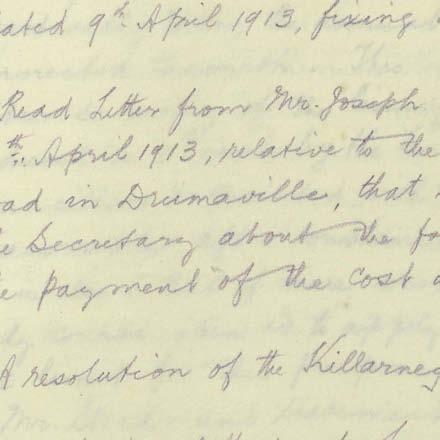 ated 9th April 1913, fixing
Read Letter from Mr. Joseph
th. April 1913, relative to the
oad in Drumaville, that
e Secretary about the fo
e payment of the cost
A resolution of the Killarney